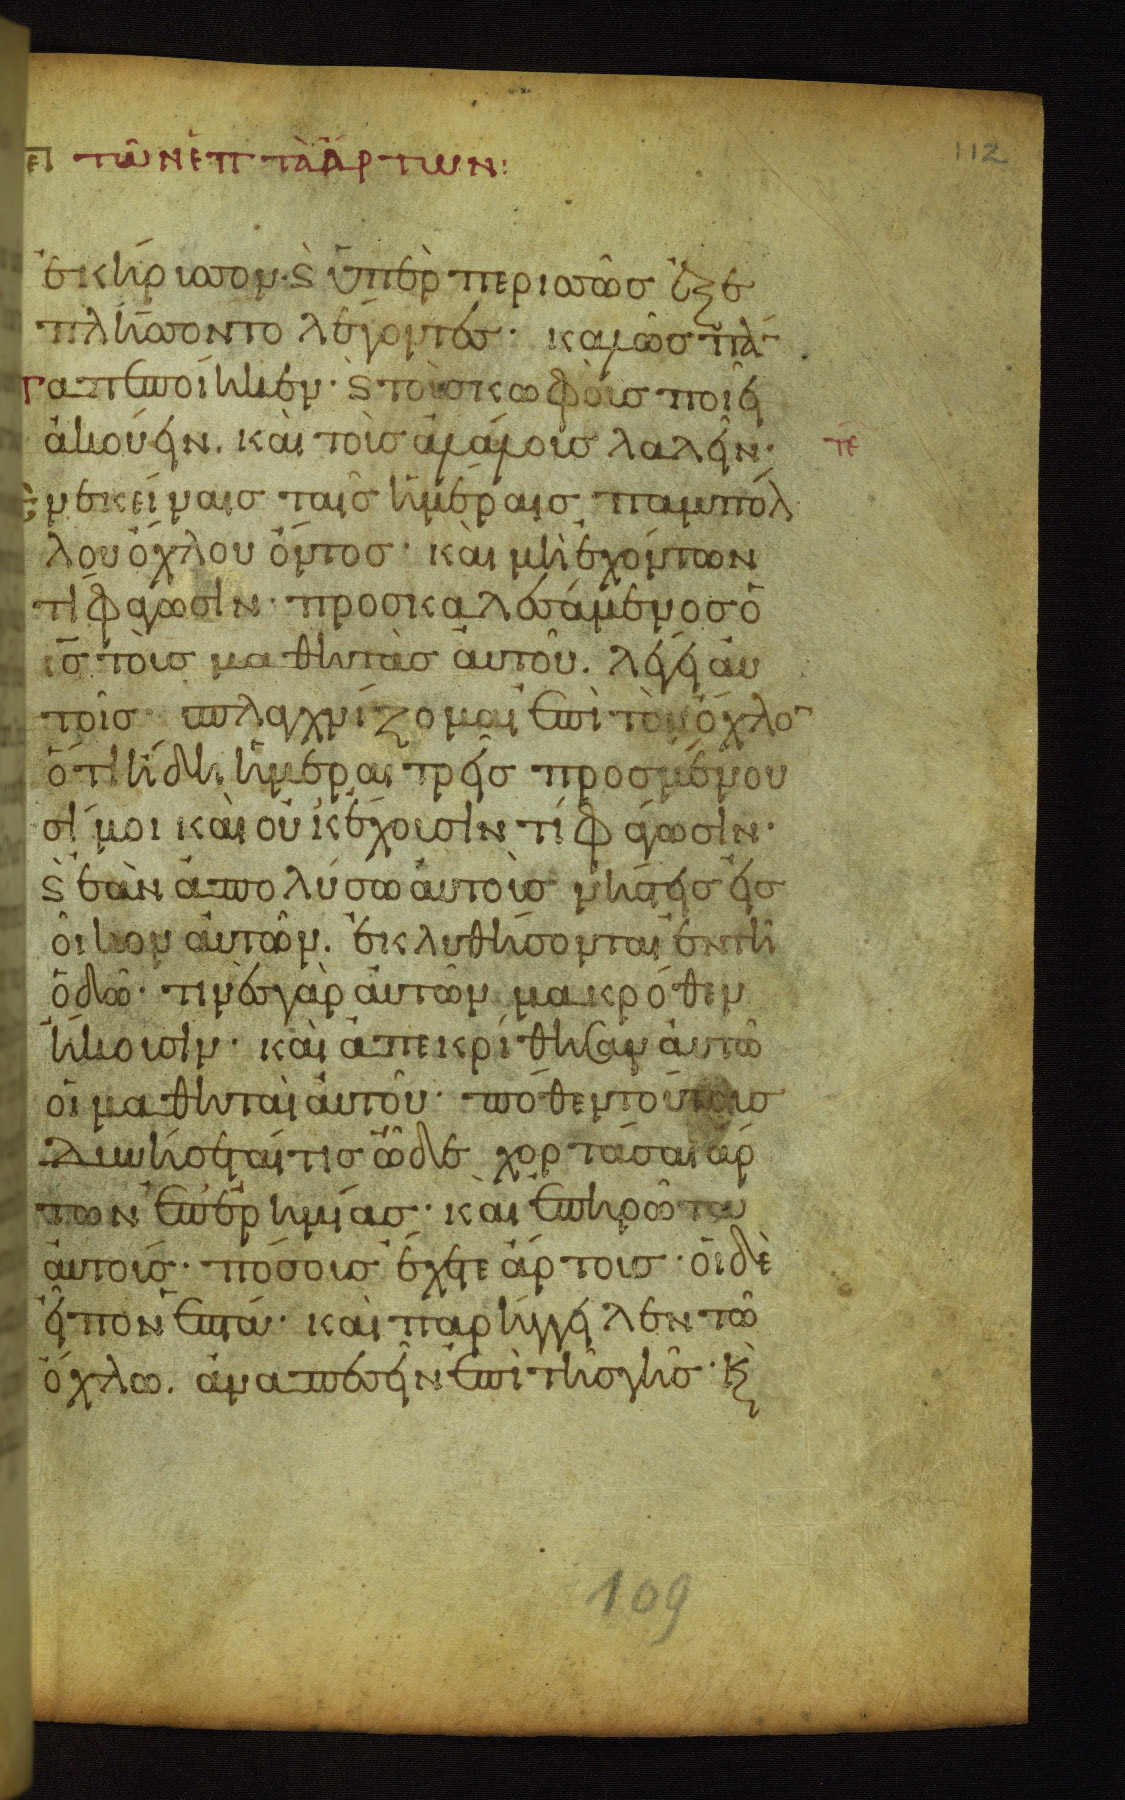 πε τῶν ἑπτὰ ἄρτων:
112
ἐκήρυσσον· ϗ ὑπερπερισσῶς ἐξε
πλήσσοντο λέγοντες· καλῶς πάν
τα πεποίηκεν· ϗ τοὺς κωφοὺς ποιεῖ
ἀκούειν. καὶ τοὺς ἀλάλους λαλεῖν·
τέ
ἐν ἐκείναις ταῖς ἡμέραις παμπόλ
λου ὄχλου ὄντος· καὶ μὴ ἐχόντων
τί φάγωσιν· προσκαλεσάμενος ὁ
ις τοὺς μαθητὰς αὐτοῦ. λέγει αὐ
τοῖς· σπλαγχνίζομαι ἐπὶ τὸν ὄχλο
ὅτι ἤδη ἡμέραι τρεῖς προσμένου
σί μοι καὶ οὐκ ἔχουσιν τί φάγωσιν·
ϗ ἐὰν ἀπολύσω αὐτοὺς νήστεις εἰς
οἶκον αὐτῶν. ἐκλυθήσονται ἐν τῆ
ὁδῶ· τινὲς γὰρ αὐτῶν μακρόθεν
ἥκουσιν· καὶ ἀπεκρίθησαν αὐτῶ
οἱ μαθηταὶ αὐτοῦ· πόθεν τούτους
δυνήσεταί τις ὧδε χορτάσαι ἄρ
των ἐπ' ἐρημίας· καὶ ἐπηρώτα
αὐτούς· πόσους ἔχετε ἄρτους· οἱ δὲ
εἶπον ἑπτά· καὶ παρήγγειλεν τῶ
ὄχλω. ἀναπεσεῖν ἐπὶ τῆς γῆς· κ
109